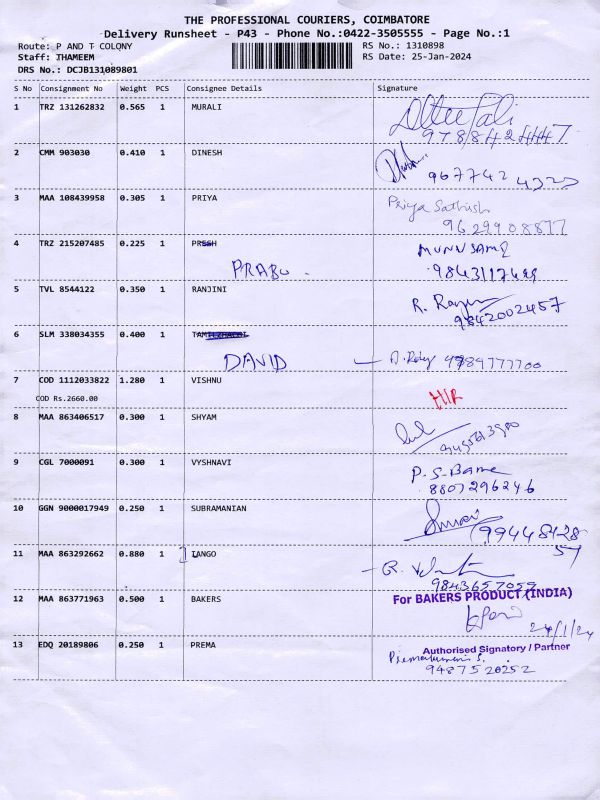 THE PROFESSIONAL COURIERS, COIMBATORE
Delivery Runsheet - P43 - Phone No.:0422-3505555 - Page No.:1
Route: P AND T COLONY
RS No.: 1310898
Staff: THAMEEM
RS Date: 25-Jan-2024
DRS No.: DCJB131089801
S No Consignment No Weight PCS Consignee Details Signature
1 TRZ 131262832 0.565 1 MURALI
2 CMM 903030 0.410 1 DINESH
3 MAA 108439958 0.305 1 PRIYA Priya Sathish
9629908877
4 TRZ 215207485 0.225 1 MUNUSAMY
PRABU.
5 TVL 8544122 0.350 1 RANJINI R.
9842002457
6 SLM 338034355 0.400 1
DAVID 9789777700
7 COD 1112033822 1.280 1 VISHNU
COD Rs.2660.00
8 MAA 863406517 0.300 1 SHYAM
9 CGL 7000091 0.300 1 VYSHNAVI P.S.
8807296246
10 GGN 9000017949 0.250 1 SUBRAMANIAN
9944848128
57
11 MAA 863292662 0.880 1 TANGO
9843657059
12 MAA 863771963 0.500 1 BAKERS For BAKERS PRODUCT (INDIA)
24/1/24
Authorised Signatory / Partner
13 EDQ 20189806 0.250 1 PREMA
9487520252